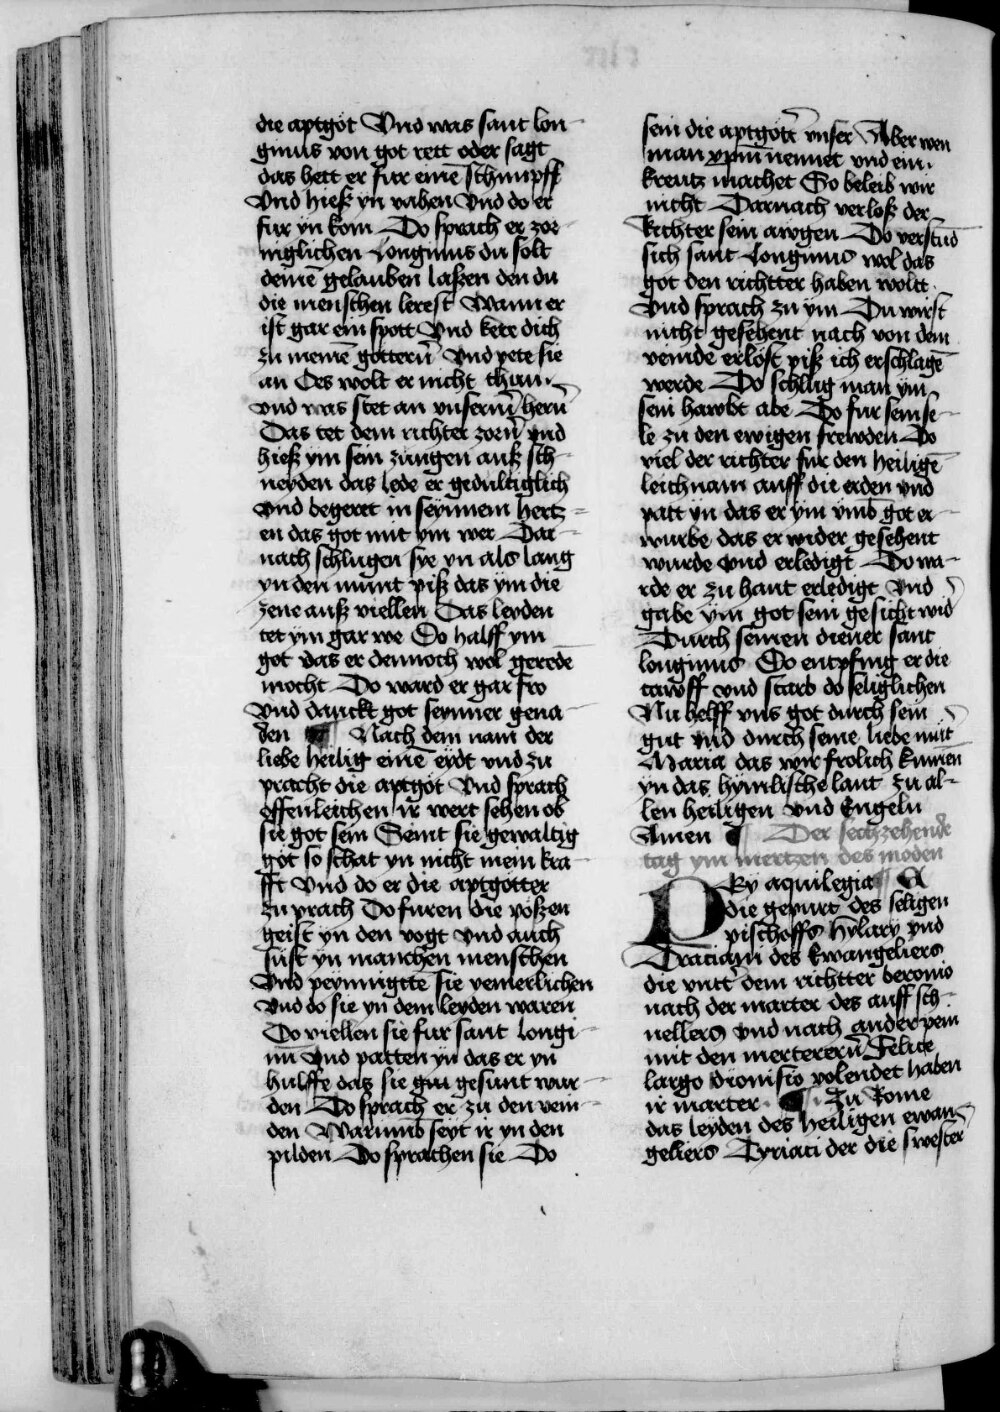 die aptgöt Vnd was sant lon-
ginus von got rett oder sagt
das hett er fur eine͂ schimpff
Vnd hieß yn vahen Vnd do er
fur yn kom Do sprach er zor-
niglichen Longinus du solt
deine͂ gelauben laßen den du
die menschen lerest Wann er
ist gar ein spott Vnd kere dich
zu meine͂ göttern͂ Vnd pete sie
an Des wolt er nicht thun
vnd was stet an vnserm͂ hern͂
Das tet dem richter zorn͂ vnd
hieß ym sein zungen auß sch-
neyden das lede er gedultiglich
vnd begeret in seynnem hertz-
en das got mit ym wer Dar-
nach schlugen sye yn als lang
yn den munt piß das ym die
zene auß viellen Das leyden
tet ym gar we Do halff ym
got das er dennoch wol gerede͂
mocht Do ward er gar fro
vnd danckt got seynner gena-
den Nach dem nam der
liebe heilig eine͂ eydt vnd zu
pracht die aptgöt Vnd sprach
offenleichen ir wert sehen ob
sie got sein Seint sie gewaltig
göt so schat yn nicht mein kra-
fft Vnd do er die aptgötter
zu prach Do furen die pößen
geist yn den vogt vnd auch
sust yn manchen menschen
Vnd peynnigtte sie veinerlichen
vnd do sie yn dem leyden waren
Do viellen sie fur sant Longi-
nu͂ Vnd patten yn das er yn
hulffe das sie gin gesunt wur-
den Do sprach er zu den vein-
den Warumb seyt ir yn den
pilden Do sprachen sie Do
sein die aptgötter vnser Aber wen
man xpm͂ nennet vnd ein
kreutz machet So beleib wir
nicht Darnach verloß der
Richter sein awgen Do verstu͂d
sich sant Longinus wol das
got den richtter haben wolt
Vnd sprach zu ym Du wirst
nicht gesehent nach von dem
veinde erlöst piß ich erschlage͂
werde Do schlug man ym
sein hawbt abe Do fur sein se-
le zu den ewigen frewden Do
viel der richter fur den heilige͂
leichnam auff die erden vnd
patt yn das er ym vmb got er-
wurbe das er wider gesehent
wurde vnd erledigt Do wa-
rde er zu hant erledigt Vnd
gabe ym got sein gesicht wid
Durch seinen diener sant
longinus So entpfing er die
tawff vnd starb do seliglichen
Nu helff vns got durch sein
gut vnd durch seine liebe mut
Maria das wir frolich kum͂en
yn das hymlische lant zu al-
len heiligen vnd Engeln
Amen Der sechzehende
tag ym mertzen des moden
By aquilegia A
die gepurt des seligen
pischoffs hylary vnd
Traciani des Ewangeliers
die vntt dem richtter beronio
nach der marter des auff sch-
nellers vnd nach ander pein
mit den merterern͂ Felice
largo dionisio volendet haben
ir marter Zu Rome
das leyden des heiligen ewan
geliers Tyriaci der die swester